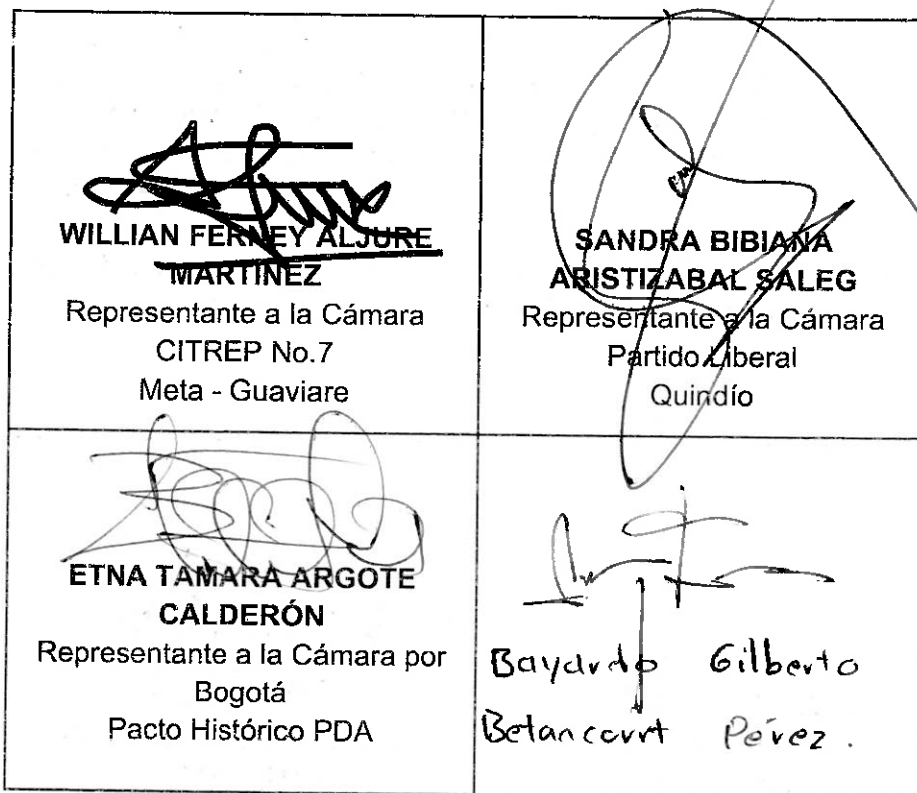 WILLIAN FERNEY ALJURE
MARTINEZ
Representante a la Cámara
CITREP No.7
Meta - Guaviare
SANDRA BIBIANA
ARISTIZABAL SALEG
Representante a la Cámara
Partido Liberal
Quindío
ETNA TAMARA ARGOTE
CALDERÓN
Representante a la Cámara por
Bogotá
Pacto Histórico PDA
Bayardo Gilberto
Betancourt Pérez.